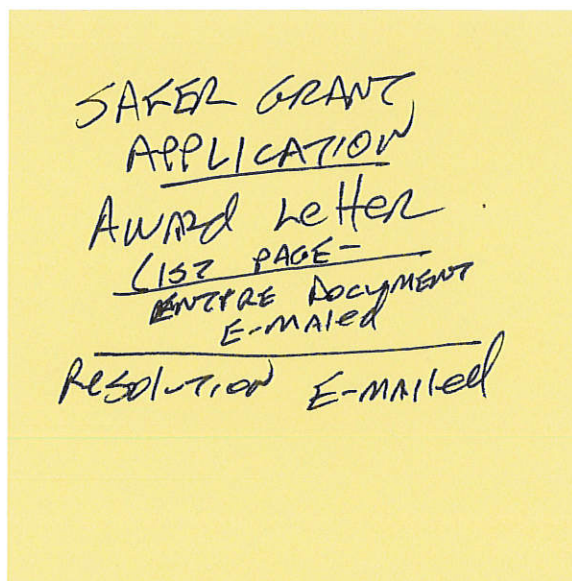 SAFER GRANT
APPLICATION
AWARd LeTTeR
(1ST PAGE-
ENTIRE DOCUMENT
E-MAIled
ReSOLUTION E-MAIled